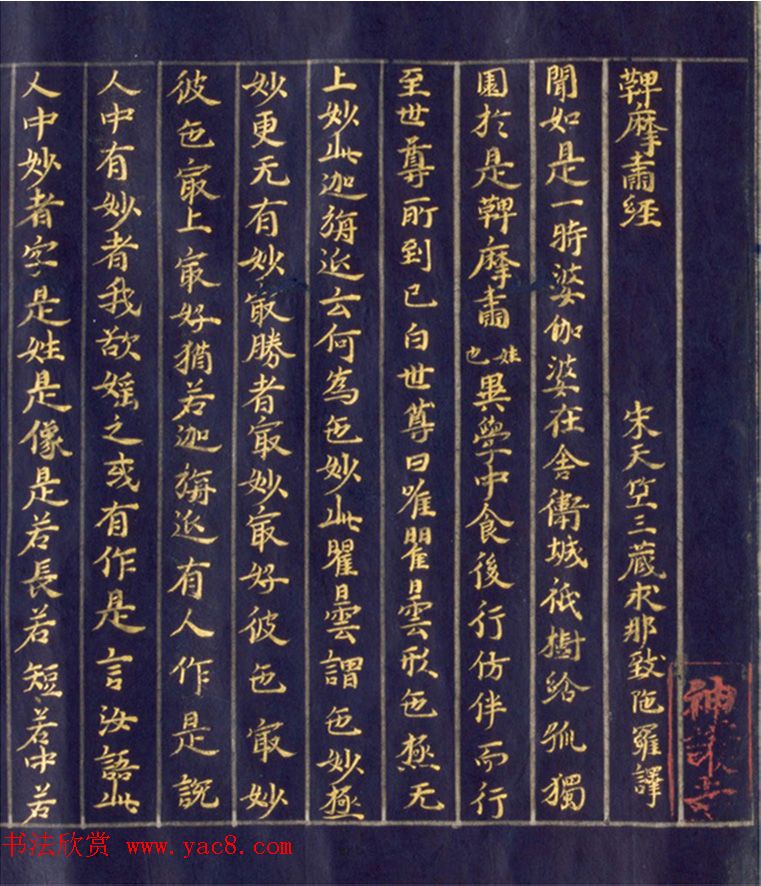 鞞摩肅経 宋天竺三蔵求那跋陁羅譯
聞如是一時婆伽婆在舎衛城祇樹給孤獨
園於是鞞摩肅姓也異學中食後行仿佯而行
至世尊所到已白世尊曰唯瞿曇形色極无
上妙此迦旃延云何為色妙此瞿曇謂色妙極
妙更无有妙最勝者最妙最好彼色最妙
彼色最上最好猶若迦旃延有人作是説
人中有妙者我欲婬之或有作是言汝語此
人中妙者字是姓是像是若長若短若中若
神護寺
书法欣赏 www.yac8.com